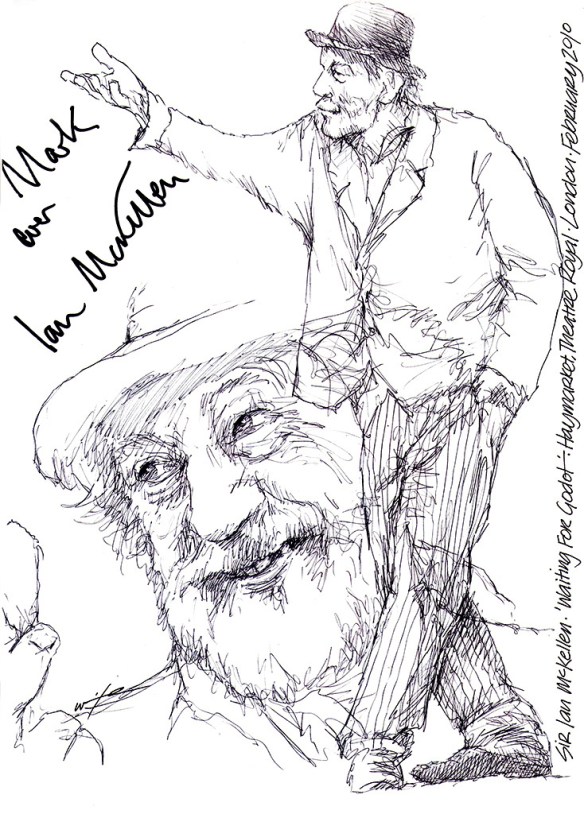 Mark
ever
Ian McKellen
Sir Ian McKellen · 'Waiting For Godot' · Haymarket, Theatre Royal · London · February 2010